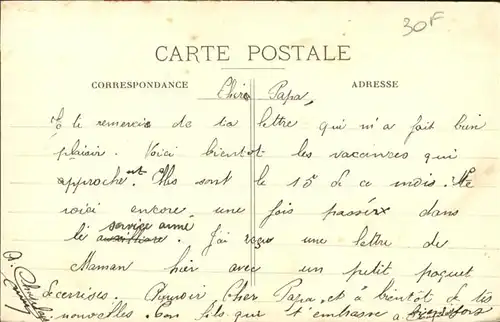 30F
CARTE POSTALE
CORRESPONDANCE
ADRESSE
Cher Papa,
Je te remercie de ta lettre qui m'a fait bien
plaisir. Voici bientot les vacances qui
approchent. Elles sont le 15 de ce mois. Me
voici encore une fois passé dans
le service armé. J'ai reçu une lettre de
Maman hier avec un petit paquet
de cerises. Revoir Cher Papa, et à bientôt de tes
nouvelles. Ton fils qui t'embrasse